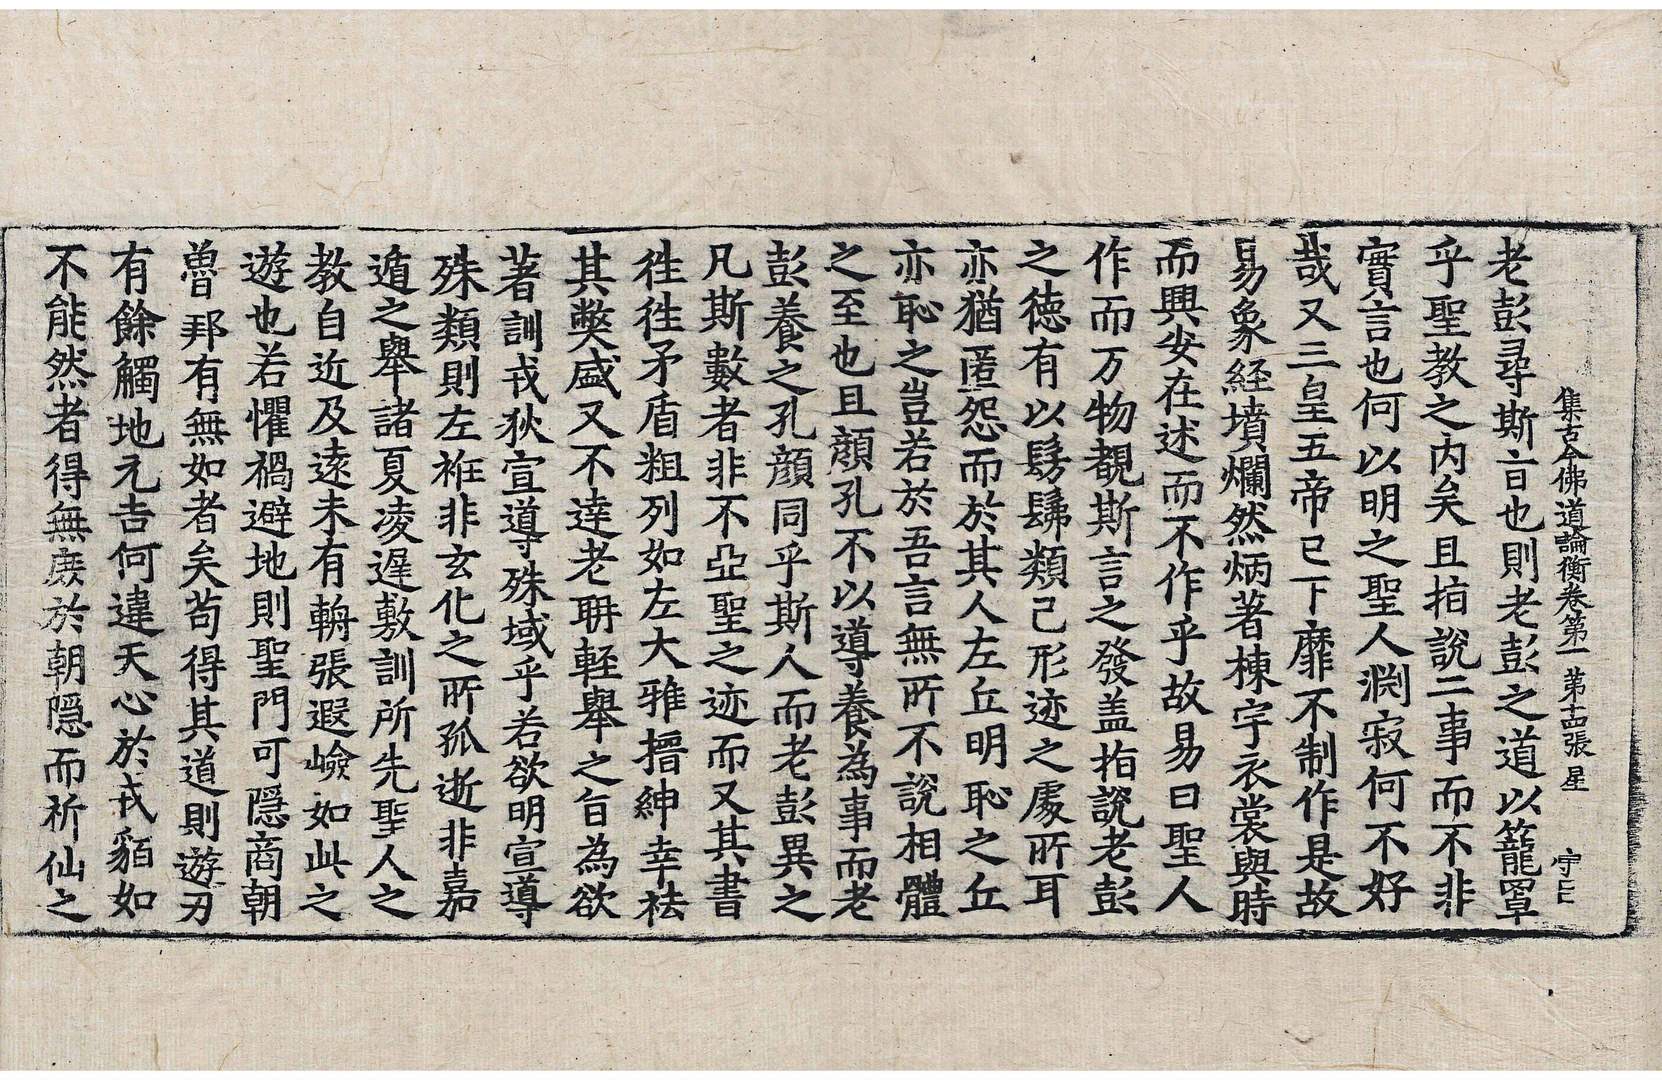 集古今佛道論衡卷第一 第十四張 星 宇
老彭尋斯言也則老彭之道以籠罩
乎聖教之内矣且指說二事而不非
實言也何以明之聖人渕寂何不好
哉又三皇五帝已下靡不制作是故
易象経墳爛然炳著棟宇衣裳與時
而興安在述而不作乎故易曰聖人
作而万物覩斯言之發盖指說老彭
之徳有以髣髴類己形迹之處所耳
亦猶匿怨而於其人左丘明恥之丘
亦恥之豈若於吾言無所不說相體
之至也且顔孔不以導養為事而老
彭養之孔顔同乎斯人而老彭異之
凡斯數者非不亞聖之迹而又其書
徃徃矛盾粗列如左大雅搢紳幸袪
其弊盛又不達老聃輊舉之旨為欲
著訓戎狄宣導殊域乎若欲明宣導
殊類則左袵非玄化之所孤逝非嘉
遁之舉諸夏凌遲敷訓所先聖人之
教自近及逺未有輈張遐嶮如此之
遊也若懼禍避地則聖門可隠商朝
魯邦有無如者矣苟得其道則遊刃
有餘觸地元吉何違天心於戎貊如
不能然者得無庶於朝隠而祈仙之